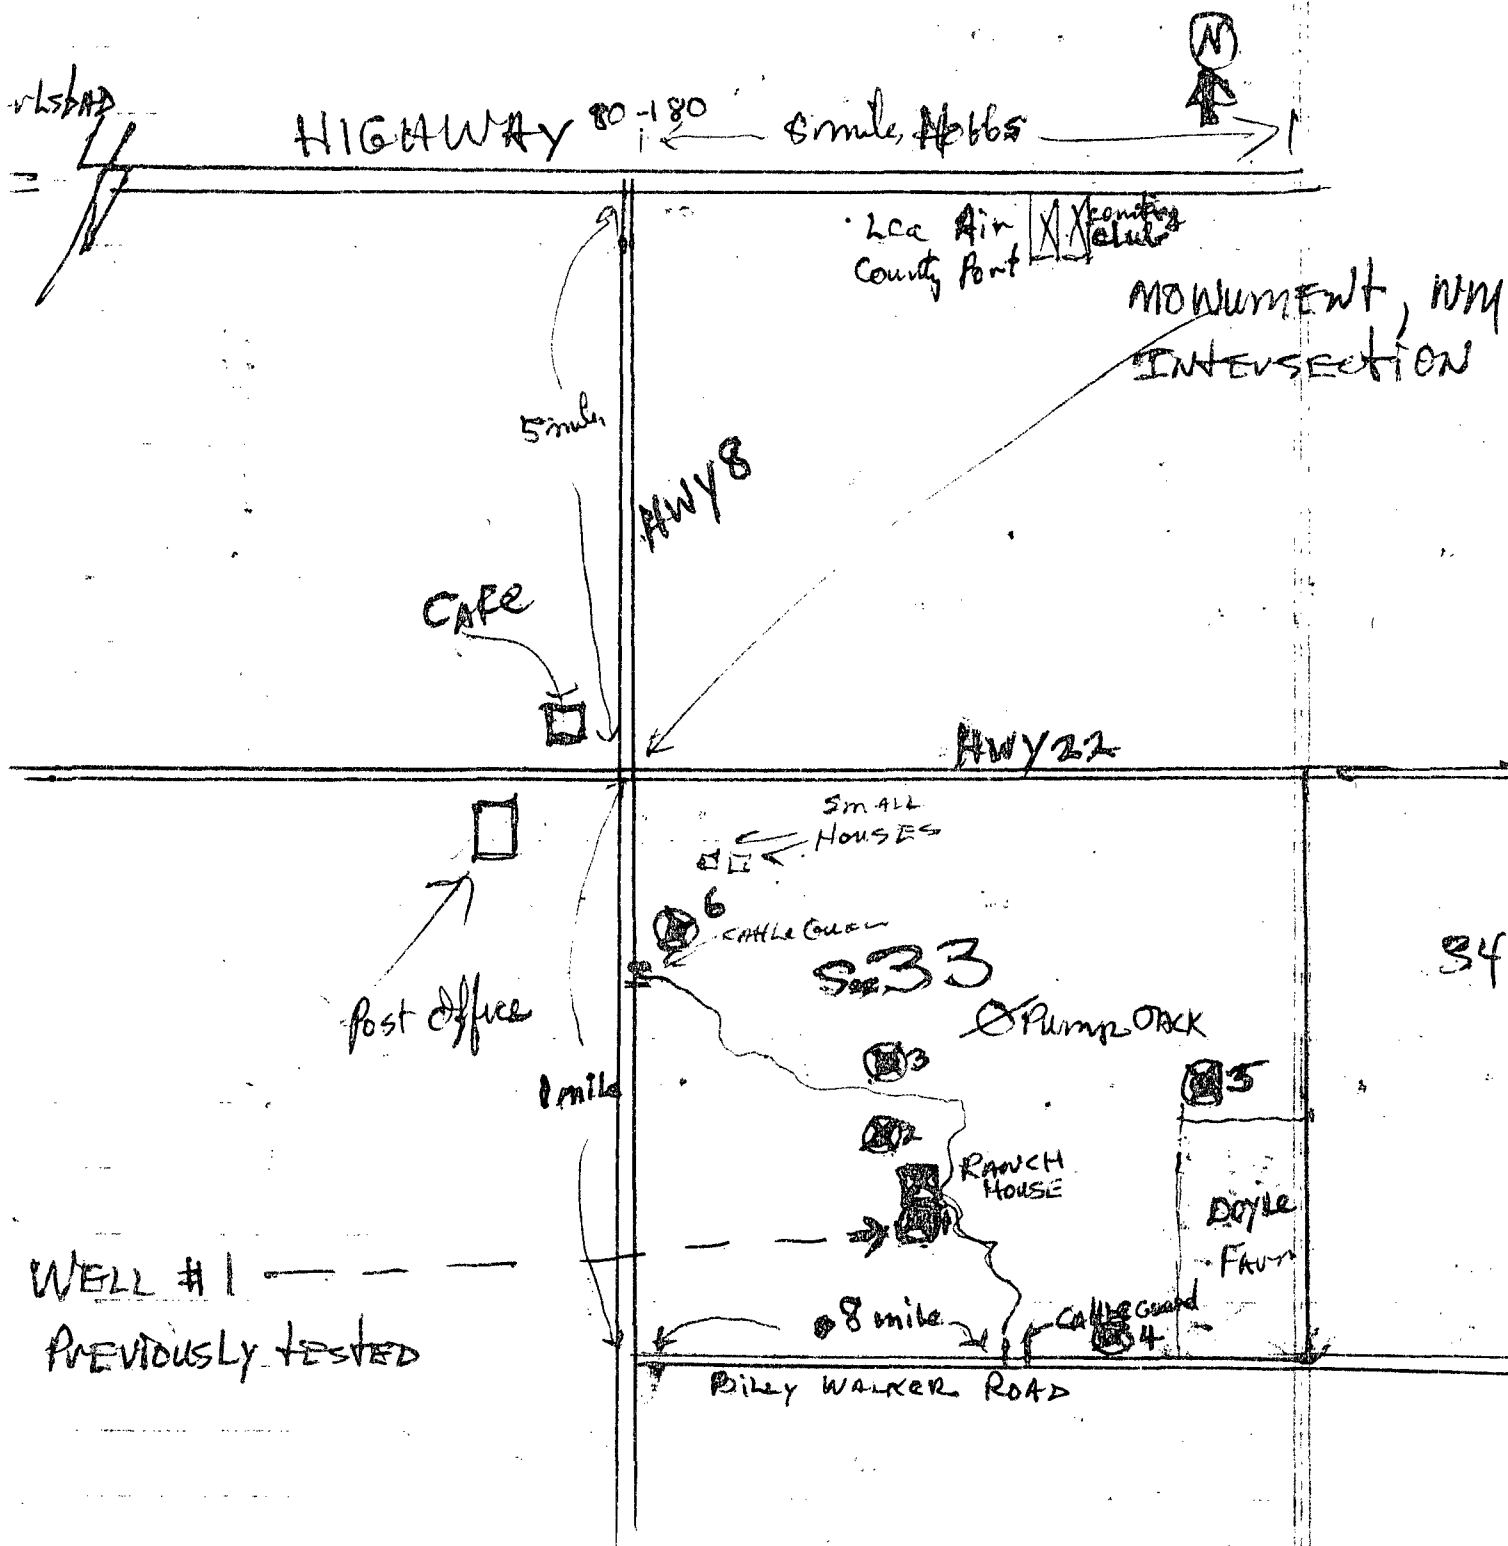 N
rlsbAD
HIGHWAY 80-180
8 mile, Hobbs
Lea Air
County Port
club
MONUMENT, NM
INTERSECTION
5 mile
HWY 8
CAFE
HWY 22
SMALL
HOUSES
6
CATTLE
Sec 33
34
Post Office
Pump JACK
3
5
1 mile
2
RANCH
HOUSE
1
DOYLE
FARM
WELL #1
PREVIOUSLY tested
.8 mile
CATTLE Guard
4
BILLY WALKER ROAD